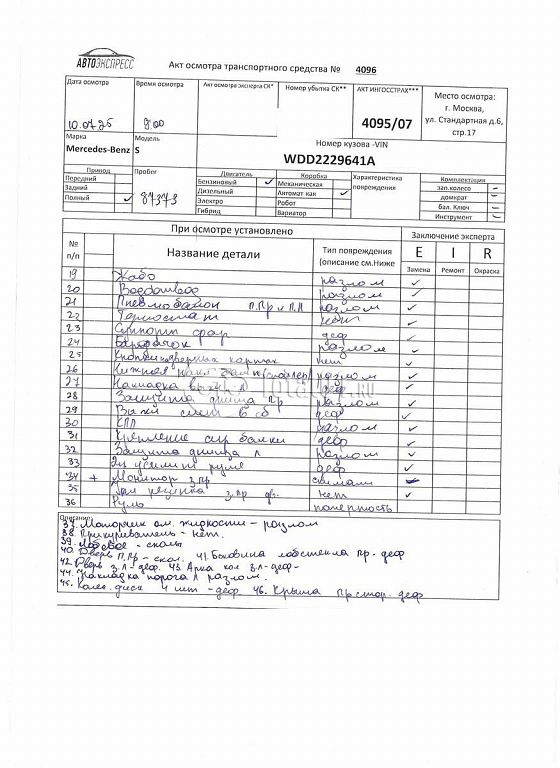 АВТОЭКСПРЕСС
Акт осмотра транспортного средства № 4096
Дата осмотра Время осмотра Акт осмотра эксперта СК* Номер убытка СК** АКТ ИНГОССТРАХ*** Место осмотра:
г. Москва,
ул. Стандартная д.6,
стр.17
9:00 4095/07
Марка Модель Номер кузова -VIN
Mercedes-Benz S WDD2229641A
Привод Пробег Двигатель Коробка Характеристика повреждения Комплектация
Передний Бензиновый ✓ Механическая зап.колесо –
Задний 87373 Дизельный Автомат как ✓ домкрат –
Полный ✓ Электро Робот бал. Ключ –
Гибрид Вариатор Инструмент –
При осмотре установлено Заключение эксперта
№ п/п Название детали Тип повреждения (описание см.Ниже E I R
Замена Ремонт Окраска
19 Жабо разлом ✓
20 разлом ✓
21 Пневмобалон п.Пр и п.Л разлом ✓
22 Термостат нет ✓
23 Суппорт деф ✓
24 Бардачок разлом ✓
25 дверных картах нет ✓
26 Нижняя разлом ✓
27 Накладка л деф ✓
28 Защита днища пр разлом ✓
29 деф ✓
30 КПП разлом ✓
31 Крепление балки деф ✓
32 Защита днища л разлом ✓
33 руля деф ✓
34 + Монитор з.пр ✓
35 з.пр дв. нет ✓
36 Руль
Описание:
37. Моторчик ом. жидкости – разлом
38. Прикуриватель – нет.
39. Лобовое – сколы
40. Дверь п.пр – скол. 41. Боковина лобстекла пр. деф
42. Дверь з.л – деф. 43. Арка кол з.л – деф –
44. Накладка порога л разлом.
45. Колес. диск 4 шт – деф. 46. Крыша Пр стор. деф